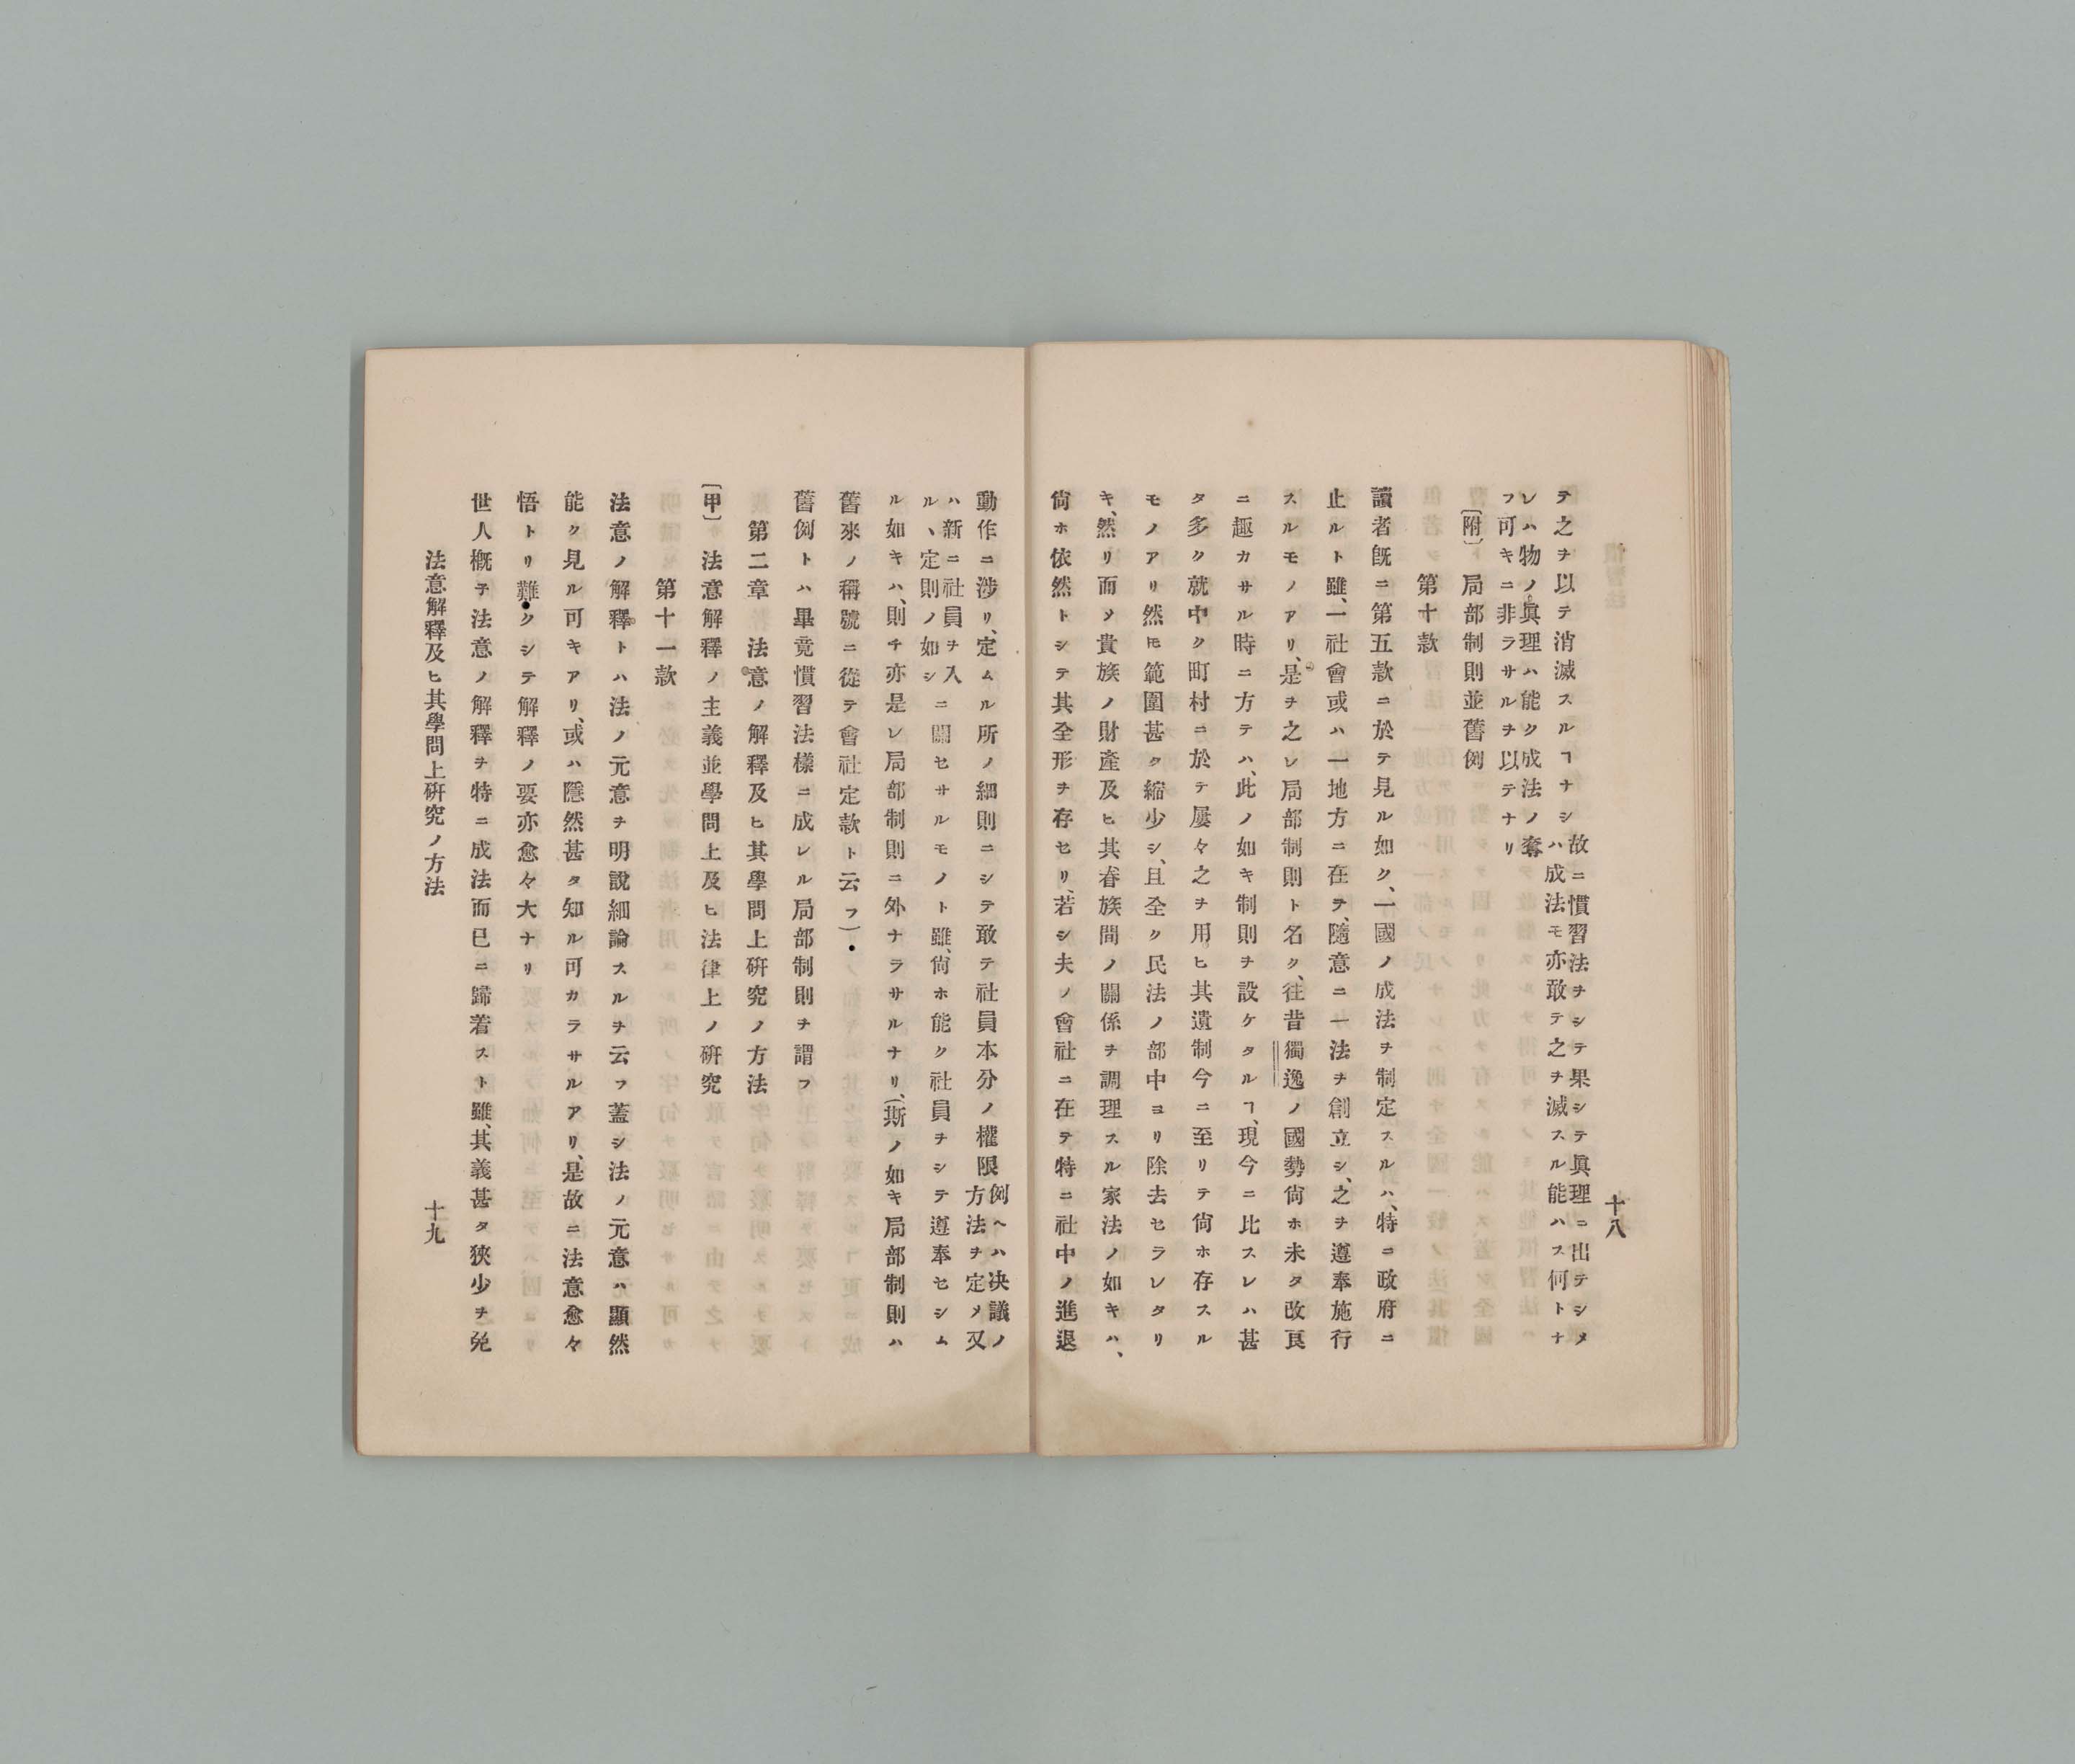 十八
テ之ヲ以テ消滅スルヿナシ
故ニ慣習法ヲシテ果シテ眞理ニ出テシメ
ハ成法モ亦敢テ之ヲ滅スル能ハス何トナ
レハ物ノ眞理ハ能ク成法ノ奪
フ可キニ非ラサルヲ以テナリ
〔附〕局部制則並舊例
第十款
讀者既ニ第五款ニ於テ見ル如ク、一國ノ成法ヲ制定スルハ、特ニ政府ニ
止ルト雖、一社會或ハ一地方ニ在テ、隨意ニ一法ヲ創立シ、之ヲ遵奉施行
スルモノアリ、是ヲ之レ局部制則ト名ク、往昔獨逸ノ國勢尙ホ未タ改良
ニ趣カサル時ニ方テハ、此ノ如キ制則ヲ設ケタルヿ、現今ニ比スレハ甚
タ多ク就中ク町村ニ於テ屢々之ヲ用ヒ其遺制今ニ至リテ尙ホ存スル
モノアリ然ㇳモ範圍甚タ縮少シ、且全ク民法ノ部中ヨリ除去セラレタリ
キ、然リ而ノ貴族ノ財產及ヒ其眷族間ノ關係ヲ調理スル家法ノ如キハ、
尙ホ依然トシテ其全形ヲ存セリ、若シ夫ノ會社ニ在テ特ニ社中ノ進退
動作ニ涉リ、定ムル所ノ細則ニシテ敢テ社員本分ノ權限
例ヘハ決議ノ
方法ヲ定メ又
ハ新ニ社員ヲ入
ルヽ定則ノ如シ
ニ關セサルモノト雖、尙ホ能ク社員ヲシテ遵奉セシム
ル如キハ、則チ亦是レ局部制則ニ外ナラサルナリ、(斯ノ如キ局部制則ハ
舊來ノ稱號ニ從テ會社定款ト云フ)
舊例トハ畢竟慣習法樣ニ成レル局部制則ヲ謂フ
第二章 法意ノ解釋及ヒ其學問上硏究ノ方法
〔甲〕法意解釋ノ主義並學問上及ヒ法律上ノ硏究
第十一款
法意ノ解釋トハ法ノ元意ヲ明說細論スルヲ云フ蓋シ法ノ元意ハ顯然
能ク見ル可キアリ、或ハ隱然甚タ知ル可カラサルアリ、是故ニ法意愈々
悟トリ難クシテ解釋ノ要亦愈々大ナリ
世人槪テ法意ノ解釋ヲ特ニ成法而已ニ歸着スト雖、其義甚タ狹少ヲ免
法意解釋及ヒ其學問上硏究ノ方法
十九